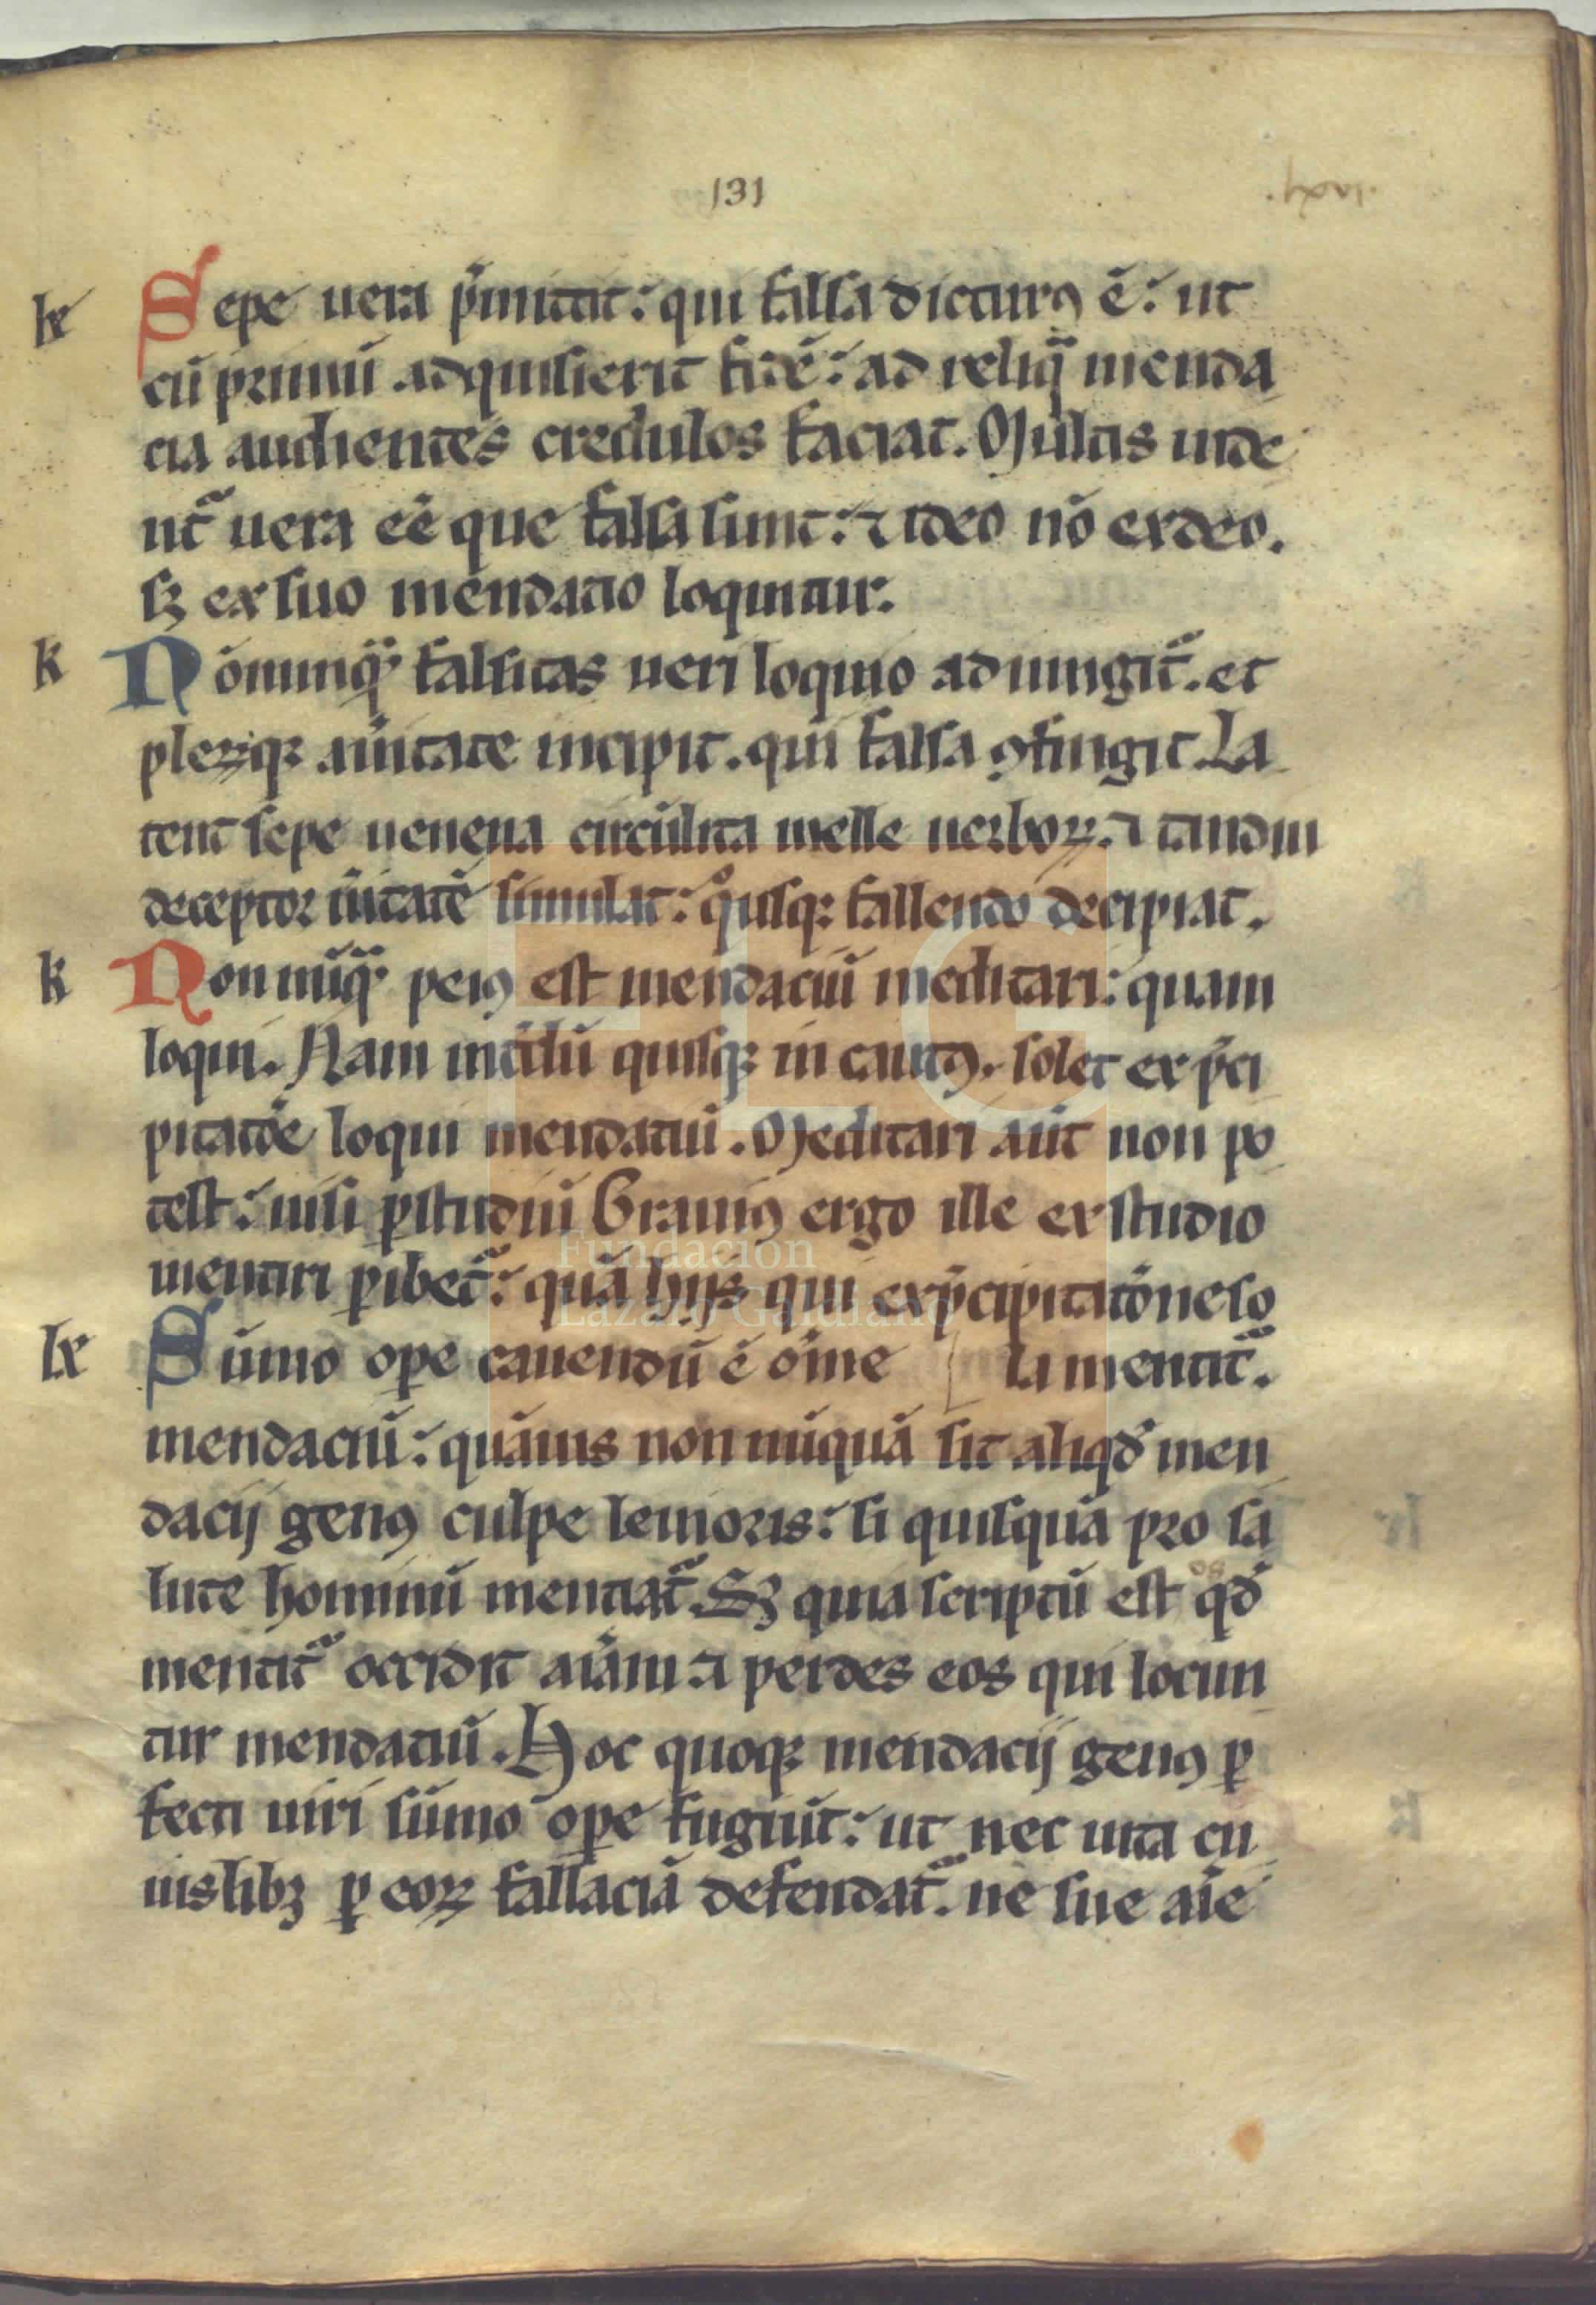 131
Sepe uera p̄mittit: qui falsa dicturꝰ ē: ut
cū primū adquisierit fidē: ad reliq̄ menda
cia audientes credulos faciat. Multis uide
nt᷑ uera eē que falsa sunt: ⁊ ideo nō ex deo.
sꝫ ex suo mendatio loquitur.
k Nōnunq̄ falsitas ueri loquio adiungit᷑. et
plerūqꝫ a ùitate incipit. qui falsa ꝯfingit. La
tent sepe uenena circūlita melle uerboꝝ. ⁊ tamdiu
deceptor ùitatē simulat: qͦusqꝫ fallendo decipiat.
k Non nūq̄ peiꝰ est mendaciū meditari: quam
loqui. Nam int̄dū quisqꝫ in cautꝰ. solet ex p̄ci
pitatōe loqui mendatiū. Meditari aūt non po
test: nisi ꝑ studiū Grauiꝰ ergo ille ex studio
mentiri ꝑibet᷑: quā hijs qui ex p̄cipitatōne so
lx Sūmo oꝑe cauendū ē om̄e la mentit᷑.
mendaciū: quāuis non nūquā sit aliqd̄ men
dacij genꝰ culpe leuioris: si quisquā pro sa
lute hominū mentiat᷑. Sꝫ quia scriptū est qd̄
mentit᷑ occidit aīam ⁊ perdes eos qui locun
tur mendatiū. Hoc quoqꝫ mendacij genꝰ ꝑ
fecti uiri sūmo oꝑe fugiūt: ut nec uita cu
iuslibꝫ ꝑ eoꝝ fallaciā defendat᷑. ne sue aīe
Fundación
Lázaro Galdiano
FLG